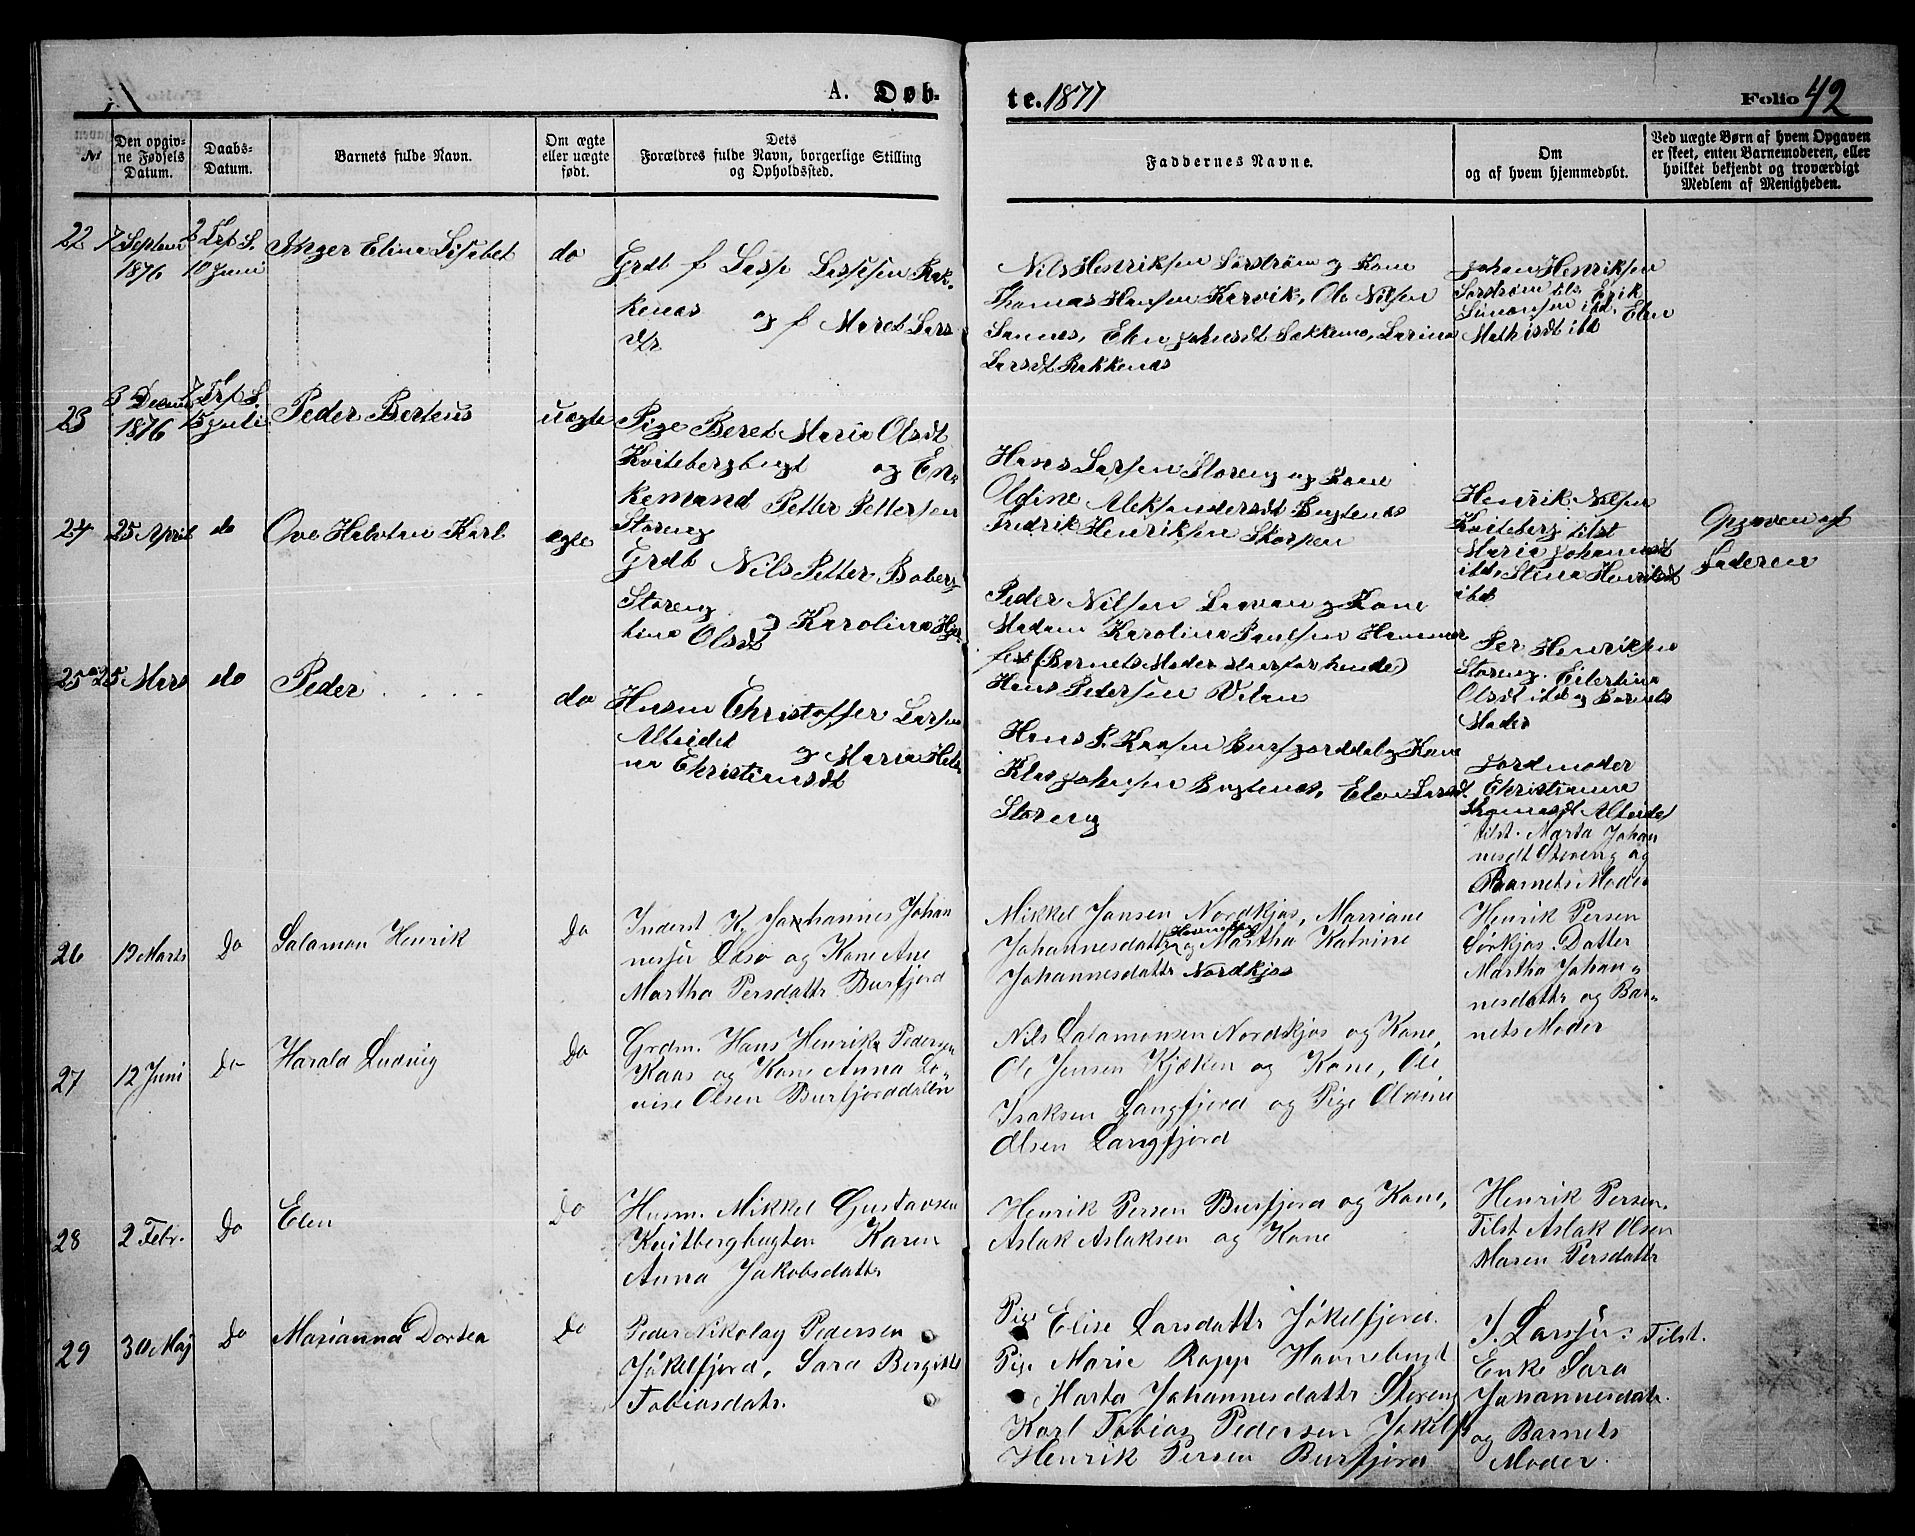 A. Døbte. 1877
Folio 42
№
Den opgivne Fødsels Datum.
Daabs-Datum.
Barnets fulde Navn.
Om ægte eller uægte født.
Dets Forældres fulde Navn, borgerlige Stilling og Opholdssted.
Faddernes Navne.
Om og af hvem hjemmedøbt.
Ved uægte Børn af hvem Opgaven er skeet, enten Barnemoderen, eller hvilket bekjendt og troværdigt Medlem af Menigheden.
22
7 Septem
1876
10 Juni
Anger Elina Lisabet
do
Grdb f Lasse Lassesen Rak-
kenes og f Maret Lars
Nils Henriksen Sørstrøm og Kone
Thomas Hansen Karvik, Ole Nilsen
Sannes, Elen Johnsdt Lakkemo, Larina
Larsdt Rakkenes
Johan Henriksen
Sørstrøm tils. Erik
Simonsen ibd. Elen
Mathisdt ibd
23
3 Decem
1876
15 Juli
Peder Berteus
uægte
Pige Beret Maria Olsdt
Kvitebergbugt og En-
kemand Petter Pettersen
Storeng
Hans Larsen Storeng og Kone
Oldine Aleksandersdt Bugtenes
Fredrik Henriksen Skorpen
Henrik Nilsen
Kviteberg tilst
Maria Johannesdt
ibd, Stina Henriksdt
ibd
Opgaven af
Faderen
24
25 April
do
Ove Halvdan Karl
egte
Grdb Nils Petter Boberg
Storeng og Karolina Hja-
tina Olsdt
Peder Nilsen Lavan og Kone
Madam Karolina Paulsen Hammer
fest (Barnets Moder staar for hende)
Hans Pedersen Vilan
Per Henriksen
Storeng. Eilertina
Olsdt ibd og Barnets
Moder
25
25 Mars
do
Peder . . . .
do
Husm Christoffer Larsen
Alteidet og Maria Hele
na Christiansdt
Hans P. Kaasen Burfjorddal og Kone
Klas Johnsen Bugtenes, Elen Larsdt
Storeng
Jordmoder
Christianna
Thomasdt Alteidet
tilst. Marta Johan
nesdt Storeng og
Barnets Moder
26
19 Marts
Do
Salamon Henrik
Do
Inderst Kv Johannes Johan
nesen Adsø og Kone Ane
Martha Persdattr Burfjord
Mikkel Jansen Nordkjos, Marriane
Johannesdattr Havnebug og Martha Katrine
Johannesdattr Nordkjos
Henrik Persen
Sørkjos. Datter
Martha Johan-
nesdattr og Bar-
nets Moder
27
12 Juni
Do
Harald Ludvig
Do
Grdm. Hans Henrik Pedersen
Kaas og Kone Anna Lo-
vise Olsen Burfjorddalen
Nils Salamonsen Nordkjos og Kone,
Ole Jensen Kjækan og Kone, Ole
Isaksen Langfjord og Pige Olevine
Olsen Langfjord
28
2 Febr.
Do
Elen
Do
Husm. Mikkel Gustavsen
Kvitbergbugten Karen
Anna Jakobsdattr
Henrik Persen Burfjord og Kone,
Aslak Aslaksen og Kone
Henrik Persen.
Tilst Aslak Olsen
Maren Persdattr
29
30 Maj
Do
Marianna Dortea
Do
Peder Nikolay Pedersen
Jøkelfjord, Sara Bergitte
Tobiasdatr.
Pige Elise Larsdattr Jøkelfjord.
Pige Marie Rapp Havnebugt
Marta Johannesdattr Storeng
Karl Tobias Pedersen Jøkelfj
Henrik Persen Burfjord
I. Larssen: Tilst.
Enke Sara
Johannesdatr.
og Barnets
Moder.